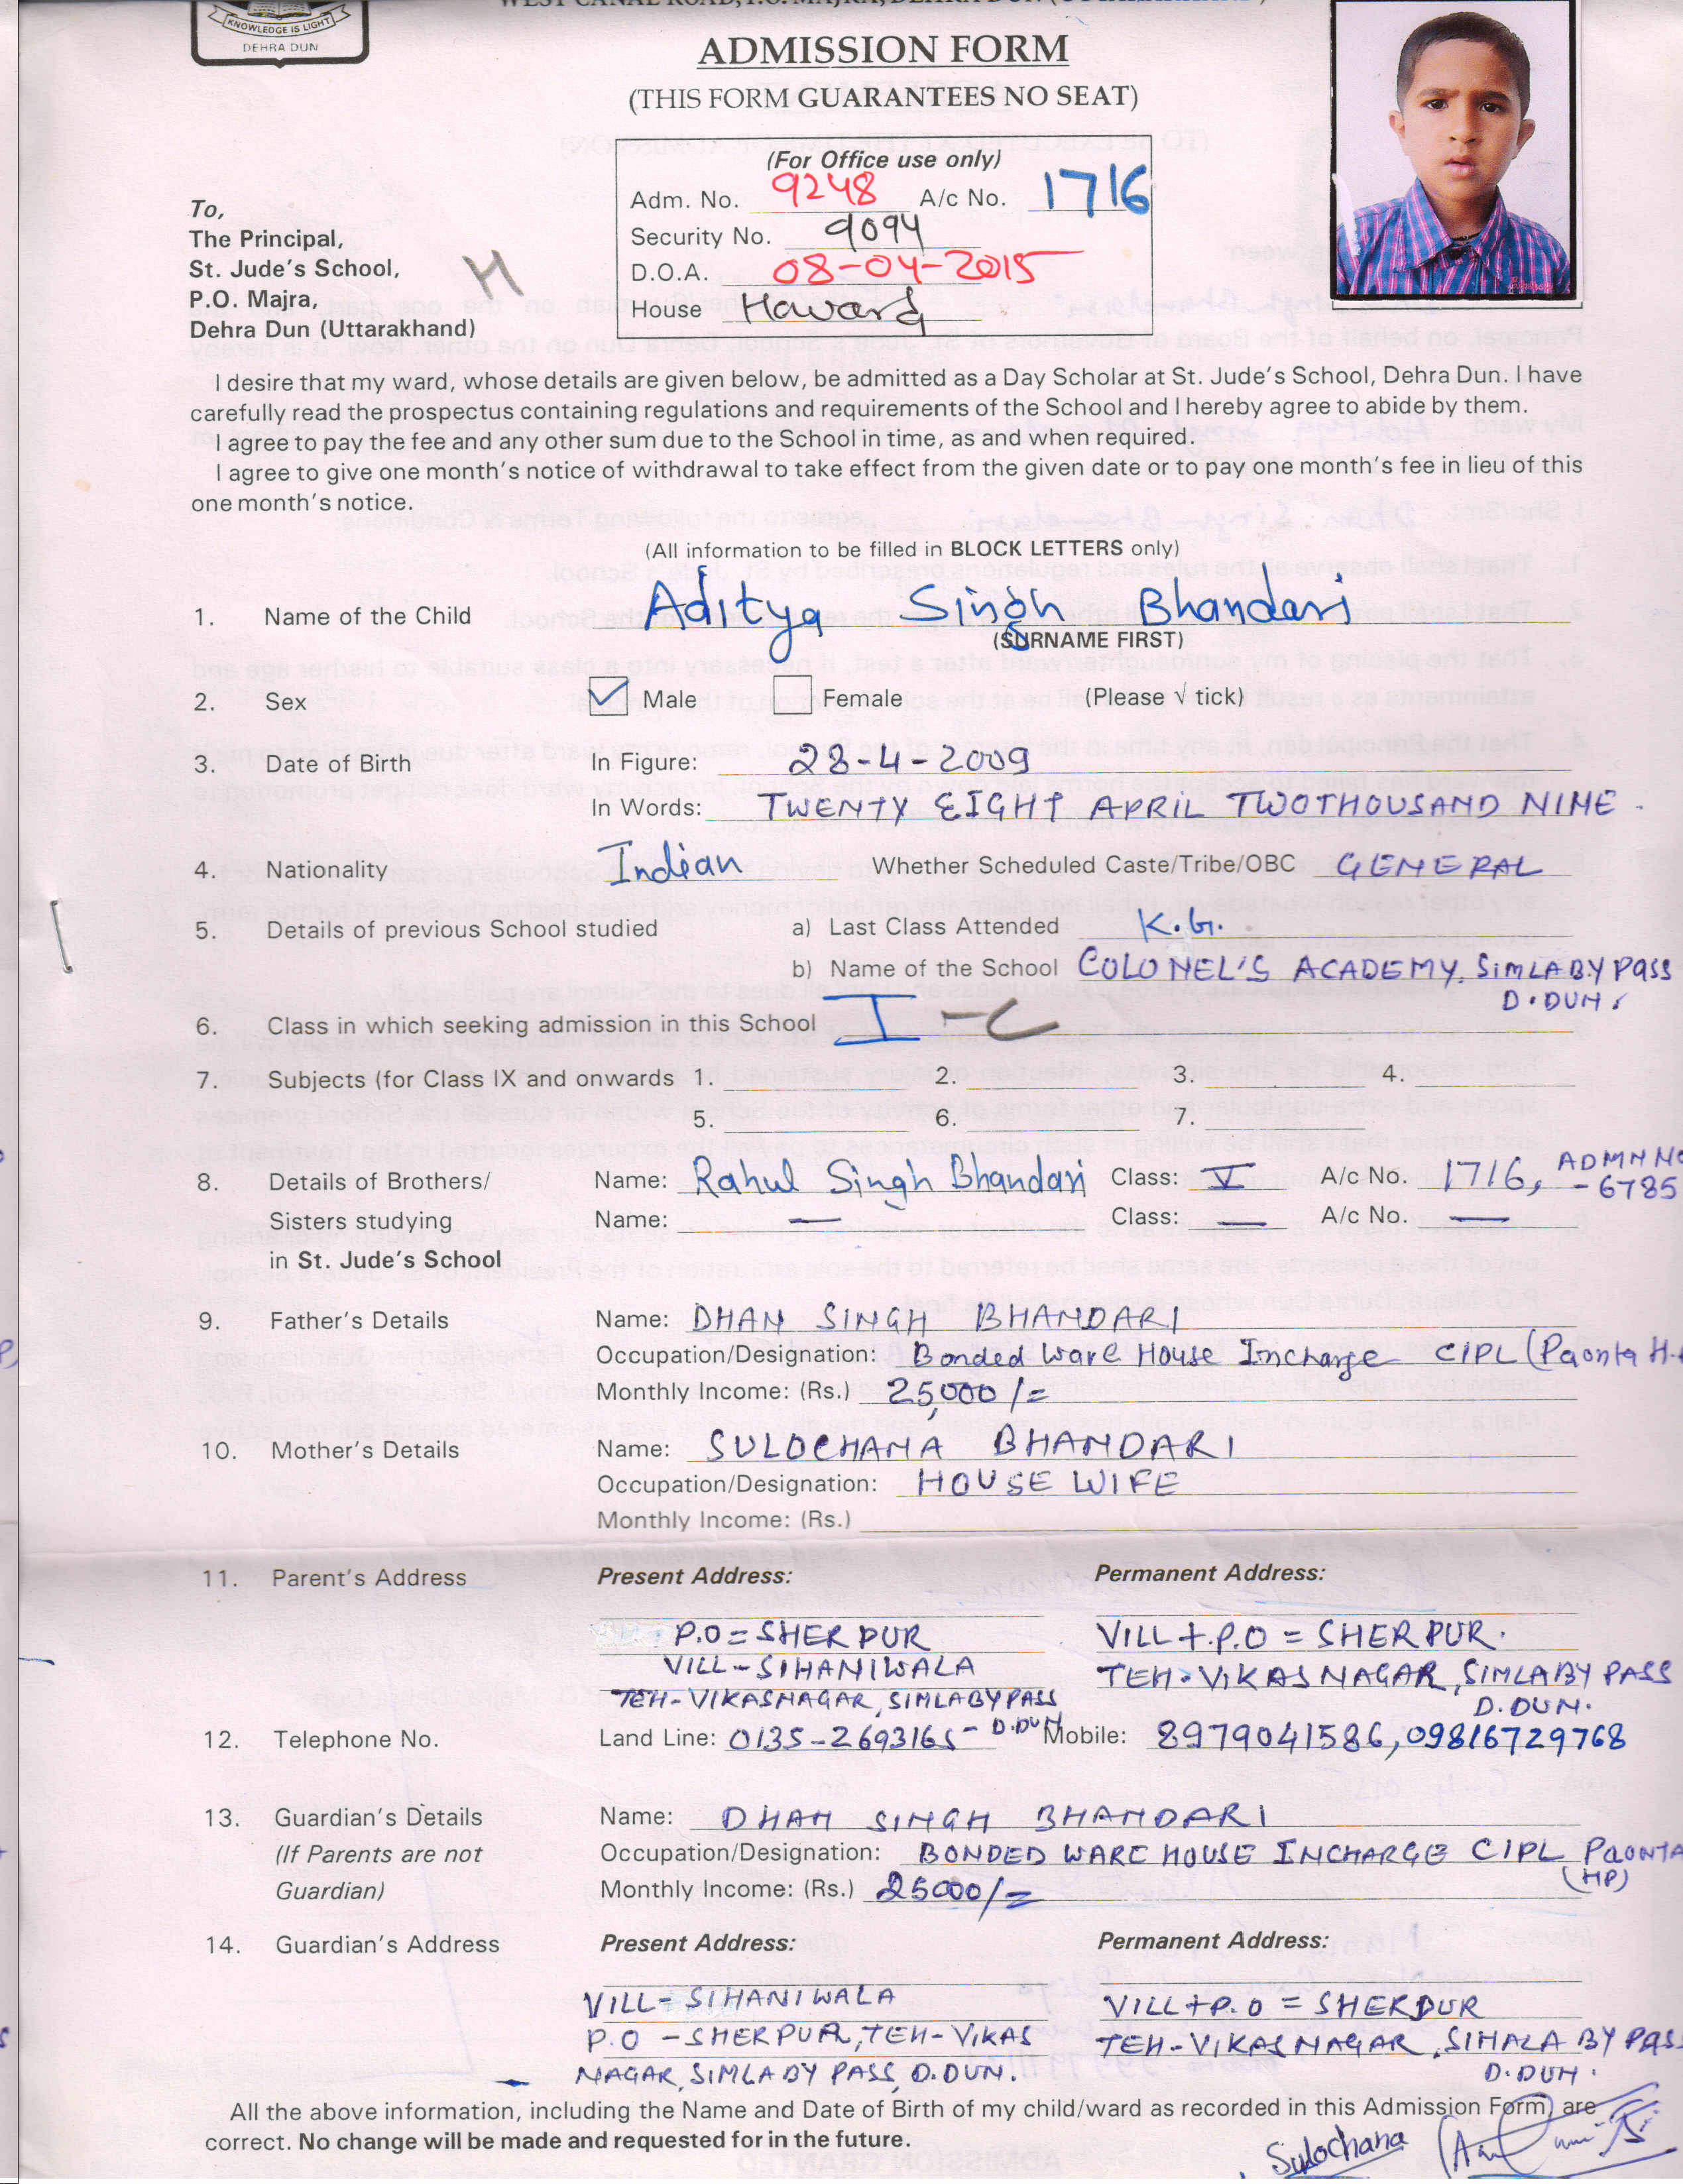 KNOWLEDGE IS LIGHT
DEHRA DUN
WEST CANAL ROAD, P.O. MAJRA, DEHRA DUN (UTTARAKHAND)
ADMISSION FORM
(THIS FORM GUARANTEES NO SEAT)
(For Office use only)
Adm. No. 9248 A/c No. 1716
Security No. 9094
D.O.A. 08-04-2015
House Havard
To,
The Principal,
St. Jude's School,
P.O. Majra,
Dehra Dun (Uttarakhand)
H
I desire that my ward, whose details are given below, be admitted as a Day Scholar at St. Jude's School, Dehra Dun. I have
carefully read the prospectus containing regulations and requirements of the School and I hereby agree to abide by them.
I agree to pay the fee and any other sum due to the School in time, as and when required.
I agree to give one month's notice of withdrawal to take effect from the given date or to pay one month's fee in lieu of this
one month's notice.
(All information to be filled in BLOCK LETTERS only)
1. Name of the Child Aditya Singh Bhandari
(SURNAME FIRST)
2. Sex Male Female (Please √ tick)
3. Date of Birth In Figure: 28-4-2009
In Words: TWENTY EIGHT APRIL TWOTHOUSAND NINE.
4. Nationality Indian Whether Scheduled Caste/Tribe/OBC GENERAL
5. Details of previous School studied a) Last Class Attended K.G.
b) Name of the School COLONEL'S ACADEMY, SIMLA BY PASS
D.DUN.
6. Class in which seeking admission in this School I - C
7. Subjects (for Class IX and onwards 1. 2. 3. 4.
5. 6. 7.
8. Details of Brothers/ Name: Rahul Singh Bhandari Class: V A/c No. 1716, ADMN NO
- 6785
Sisters studying Name: — Class: — A/c No. —
in St. Jude's School
9. Father's Details Name: DHAN SINGH BHANDARI
Occupation/Designation: Bonded Ware House Incharge CIPL (Paonta H.
Monthly Income: (Rs.) 25,000/=
10. Mother's Details Name: SULOCHANA BHANDARI
Occupation/Designation: HOUSE WIFE
Monthly Income: (Rs.)
11. Parent's Address Present Address: Permanent Address:
P.O = SHERPUR VILL + P.O = SHERPUR.
VILL - SIHANIWALA TEH - VIKASNAGAR, SIMLA BY PASS
TEH - VIKASNAGAR, SIMLA BY PASS D.DUN.
D.DUN
12. Telephone No. Land Line: 0135-2693165 - Mobile: 8979041586, 09816729768
13. Guardian's Details Name: DHAN SINGH BHANDARI
(If Parents are not Occupation/Designation: BONDED WARE HOUSE INCHARGE CIPL PAONTA
(HP)
Guardian) Monthly Income: (Rs.) 25000/=
14. Guardian's Address Present Address: Permanent Address:
VILL - SIHANIWALA VILL + P.O = SHERPUR
P.O - SHERPUR, TEH - VIKAS TEH - VIKASNAGAR, SIMALA BY PAS
NAGAR, SIMLA BY PASS, D.DUN. D.DUN.
All the above information, including the Name and Date of Birth of my child/ward as recorded in this Admission Form, are
correct. No change will be made and requested for in the future.
Sulochana